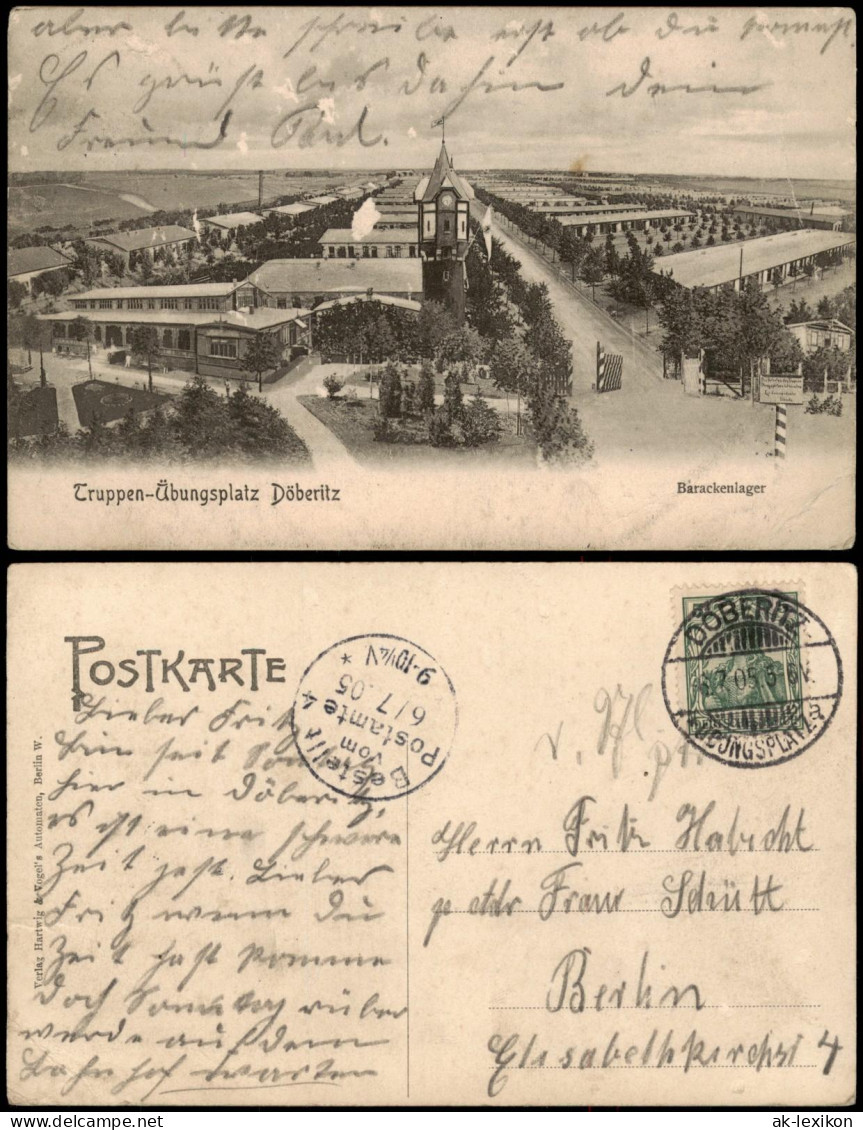 aber bitte schreibe erst ob du kommst
Es grüßt bis dahin dein
Freund Paul.
Truppen-Übungsplatz Döberitz
Barackenlager
POSTKARTE
Verlag Hartwig & Vogel's Automaten, Berlin W.
Bestellt
vom
Postamte 4
6/7.05
9-10¼V
*
DÖBERITZ
6.7.05.
ÜBUNGSPLATZ
Lieber Fritz
bin seit
hier in Döberitz,
es ist eine schwere
Zeit jetzt. Lieber
Fritz wenn du
Zeit hast komme
doch Sonntag rüber
werde auf dem
Bahnhof warten
Herrn Fritz Habicht
p adr Frau Schütt
Berlin
Elisabethkirchst 4
ak-lexikon.com